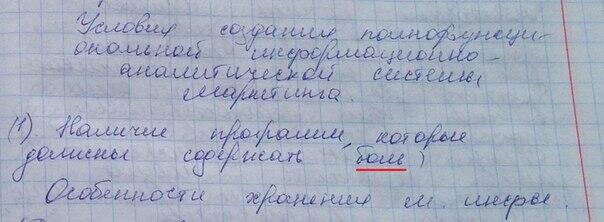 Условия создания полнофункци-
ональной информационно-
аналитической системы
маркетинга.
(1) Наличие программ, которые
должны содержать
Особенности хранения м. инфы.